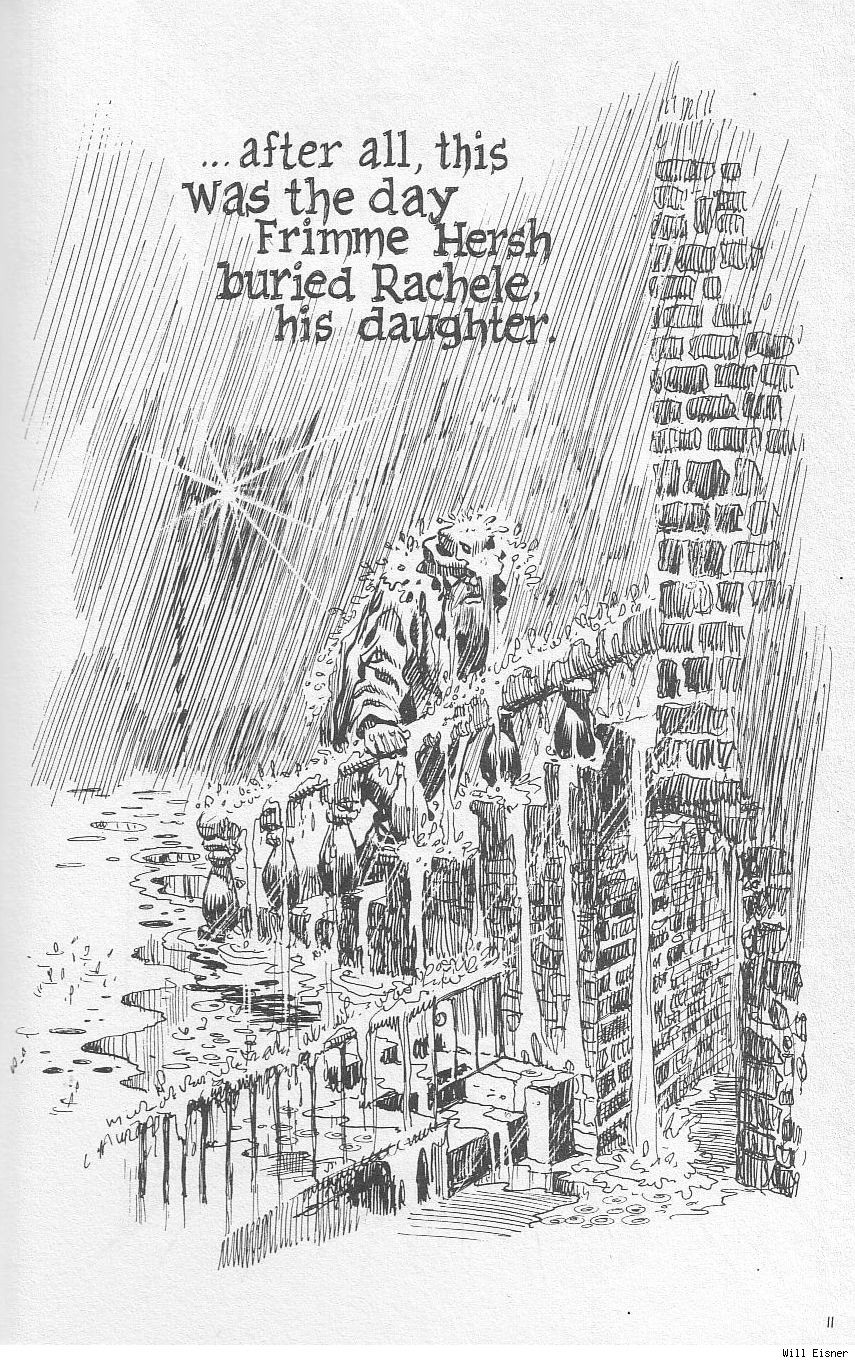 ...after all, this
was the day
Frimme Hersh
buried Rachele,
his daughter.
11
Will Eisner